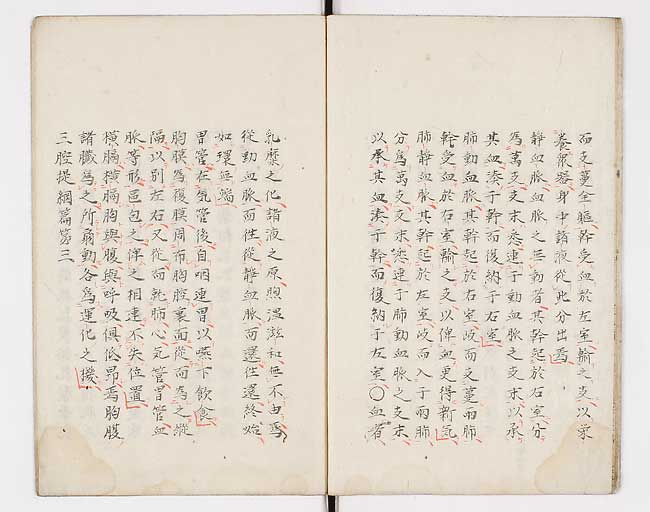 而支蔓全軀幹受血於左室輸之支以榮
養眾器身中諸液從此分出焉
靜血脈血脈之無動者其幹起於右室分
為萬支支末悉連于動血脈之支末以承
其血湊于幹而復納于右室
肺動血脈其幹起於右室歧而支蔓兩肺
幹受血於右室輸之支以俾血更得新氣
肺靜血脈其幹起於左室歧而入于兩肺
分為萬支支末悉連于肺動血脈之支末
以承其血湊于幹而復納于左室〇血者
乳糜之化諸液之原煦溫滋和無不由焉
從動血脈而往從靜血脈而還往還終始
如環無端
胃管在氣管後自咽連胃以嚥下飲食
胸膜為復膜周布胸腔裏面從而為之縱
隔以別左右又從而乾肺心氣管胃管血
脈等形區包之俾之相連不失位置
橫膈橫膈胸與腹與呼吸俱低昂焉胸腹
諸臟為之所扇動各為運化之機
三腔提綱篇第三